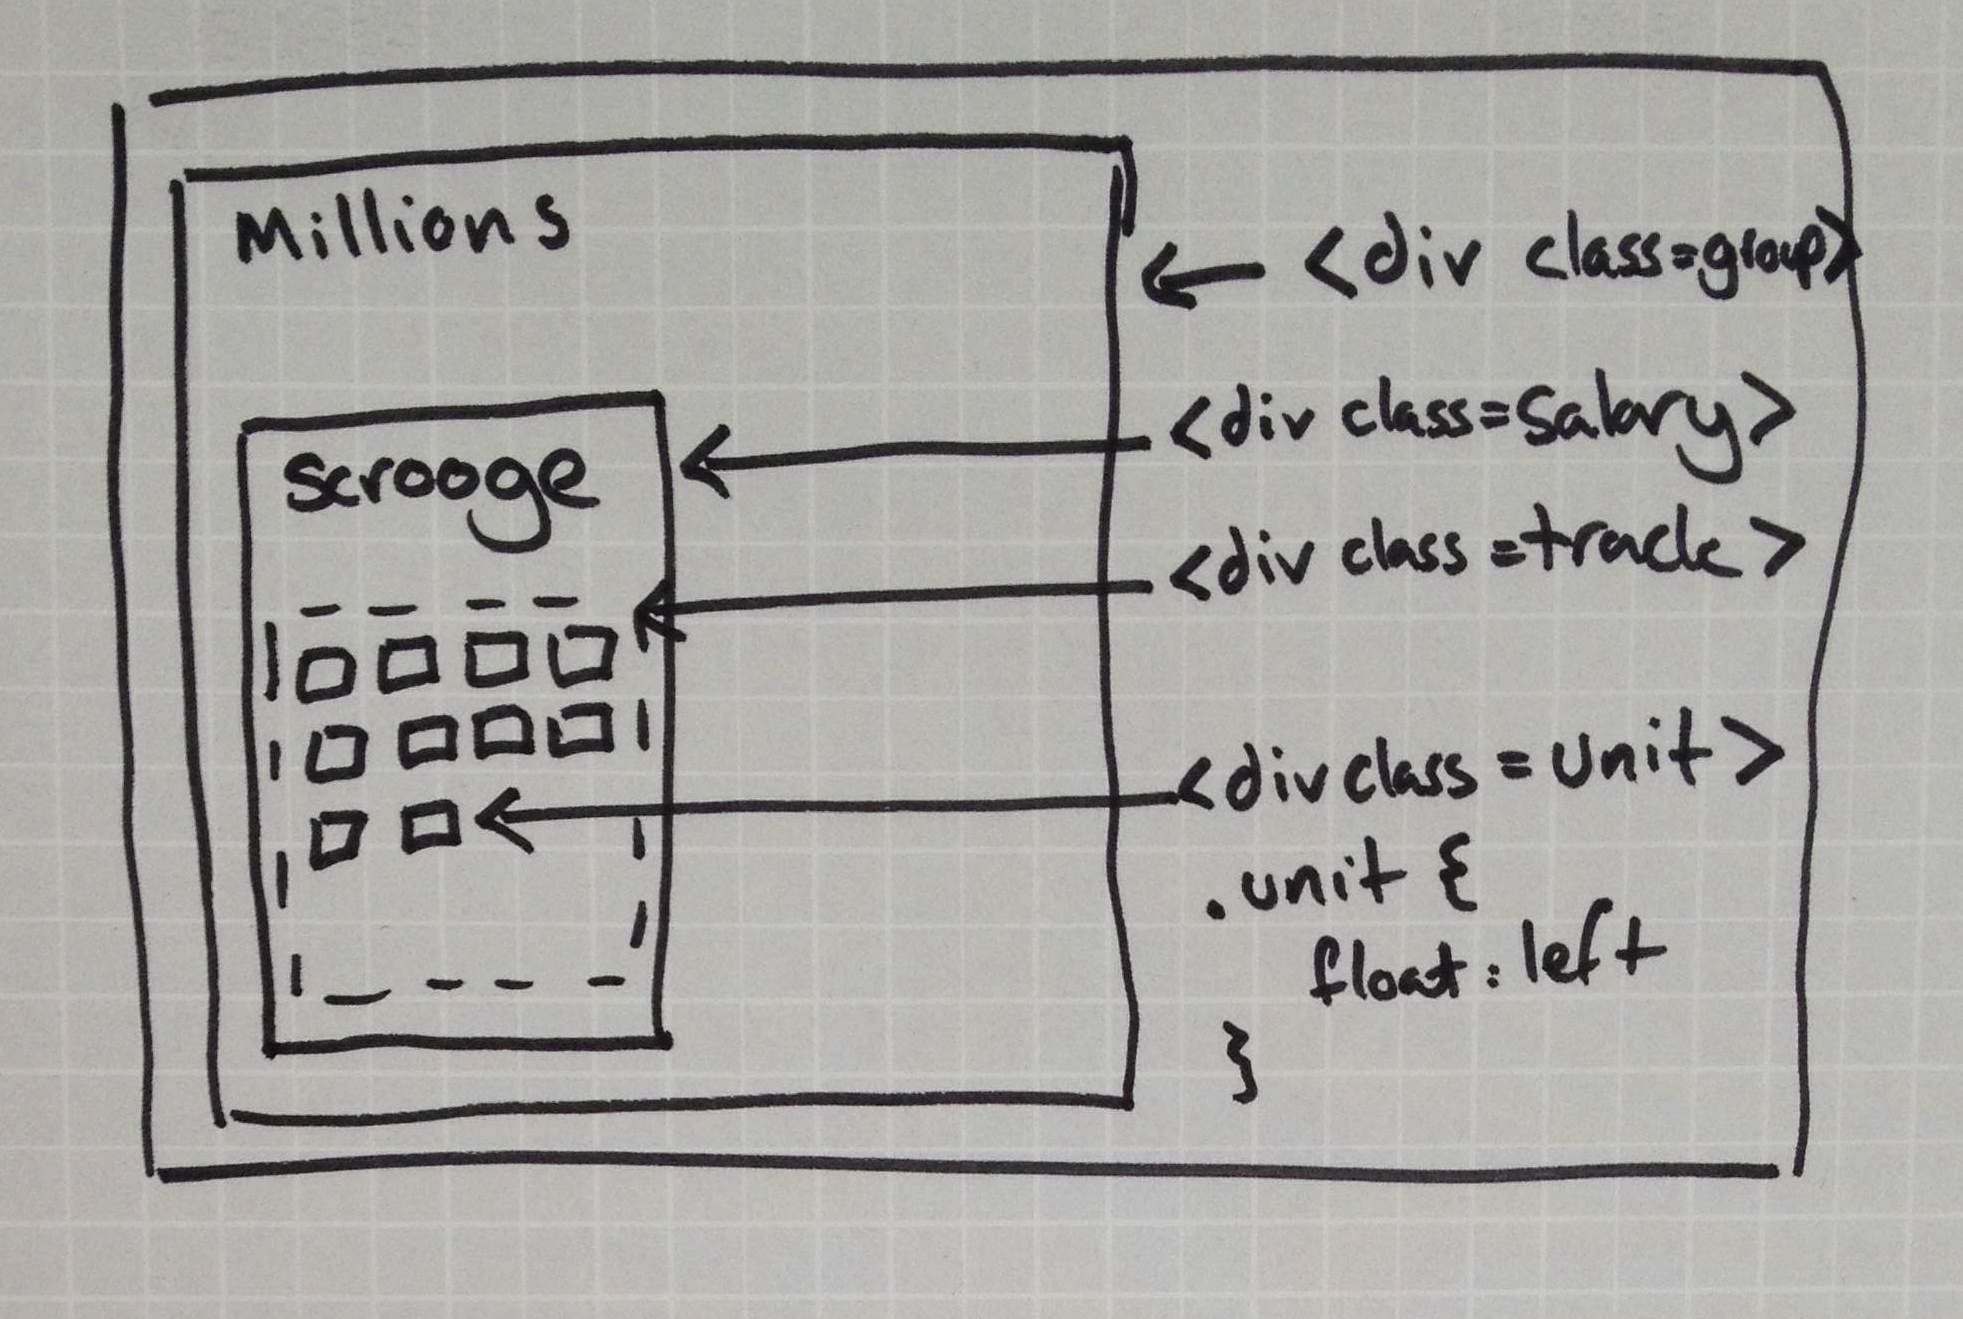 Millions
<div class=group>
<div class=salary>
scrooge
<div class=track>
<div class=unit>
.unit {
float: left
}